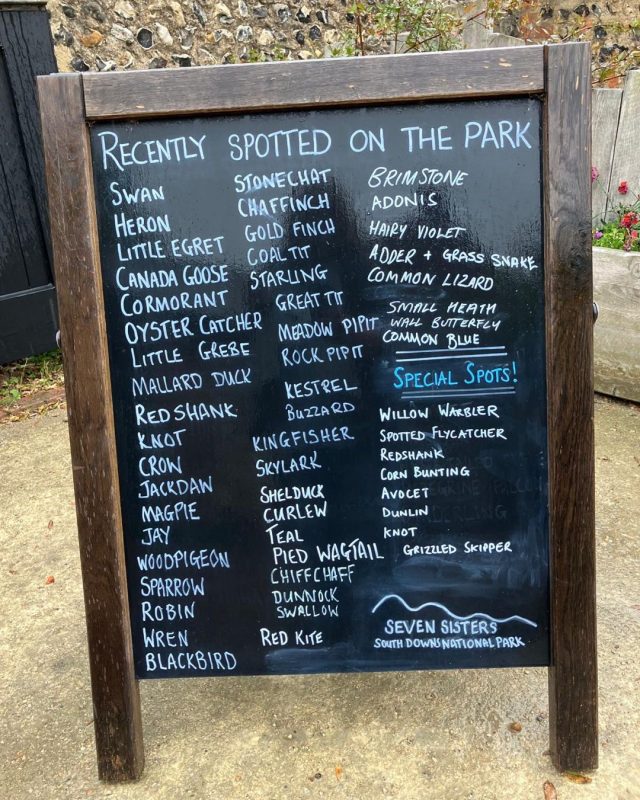 RECENTLY SPOTTED ON THE PARK
SWAN
HERON
LITTLE EGRET
CANADA GOOSE
CORMORANT
OYSTER CATCHER
LITTLE GREBE
MALLARD DUCK
REDSHANK
KNOT
CROW
JACKDAW
MAGPIE
JAY
WOODPIGEON
SPARROW
ROBIN
WREN
BLACKBIRD
STONECHAT
CHAFFINCH
GOLD FINCH
COAL TIT
STARLING
GREAT TIT
MEADOW PIPIT
ROCK PIPIT
KESTREL
BUZZARD
KINGFISHER
SKYLARK
SHELDUCK
CURLEW
TEAL
PIED WAGTAIL
CHIFFCHAFF
DUNNOCK
SWALLOW
RED KITE
BRIMSTONE
ADONIS
HAIRY VIOLET
ADDER + GRASS SNAKE
COMMON LIZARD
SMALL HEATH
WALL BUTTERFLY
COMMON BLUE
SPECIAL SPOTS!
WILLOW WARBLER
SPOTTED FLYCATCHER
REDSHANK
CORN BUNTING
AVOCET
DUNLIN
KNOT
GRIZZLED SKIPPER
SEVEN SISTERS
SOUTH DOWNS NATIONAL PARK